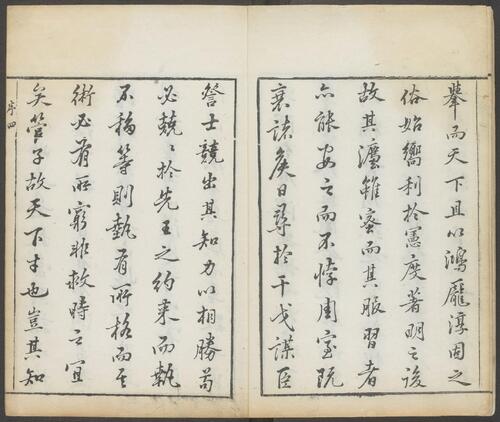 舉而天下且以鴻龐淳固之
俗始嚮利於憲度著明之後
故其灋雖蜜而其服習者
亦能安之而不悖周室既
衰諸矦日尋於干戈謀臣
士競出其知力以相勝苟
必兢〻於先王之約束而執
不稱等則埶有所格而其
術必有所窮非救時之宜
矣管子故天下才也豈其知
序四